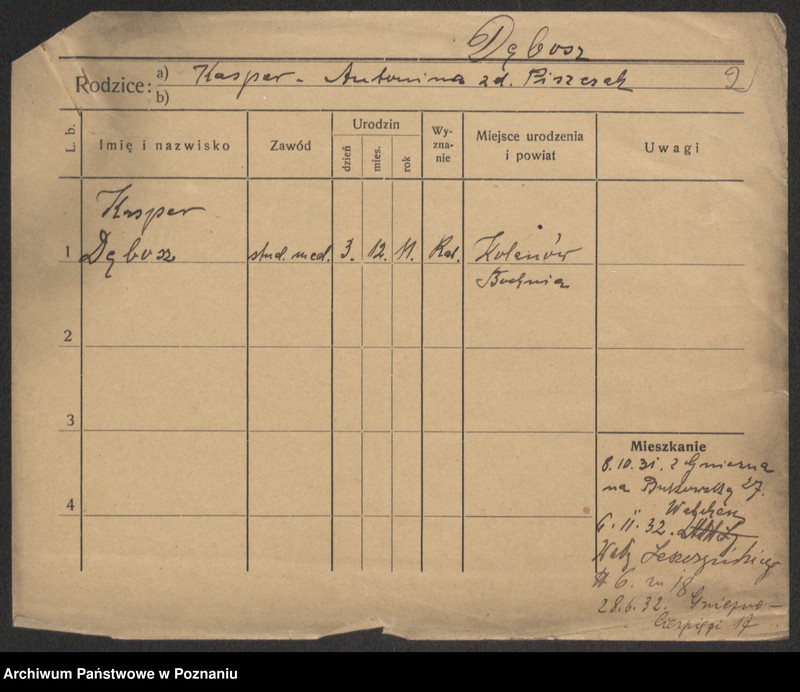 Dębosz
Rodzice: a) Kasper - Antonina zd. Piszczek 2
b)
L. b. Imię i nazwisko Zawód Urodzin dzień mies. rok Wy-zna-nie Miejsce urodzenia i powiat Uwagi
Kasper
1 Dębosz stud. med. 3. 12. 11. Rk. Kolanów
Bochnia
2
3
4
Mieszkanie
8.10.31. z Gniezna
na Bukowską 27.
6.II.32.
Wały Leszczyńskiego
6. m 18
28.6.32. Gniezno -
Cierpięgi 17
Archiwum Państwowe w Poznaniu